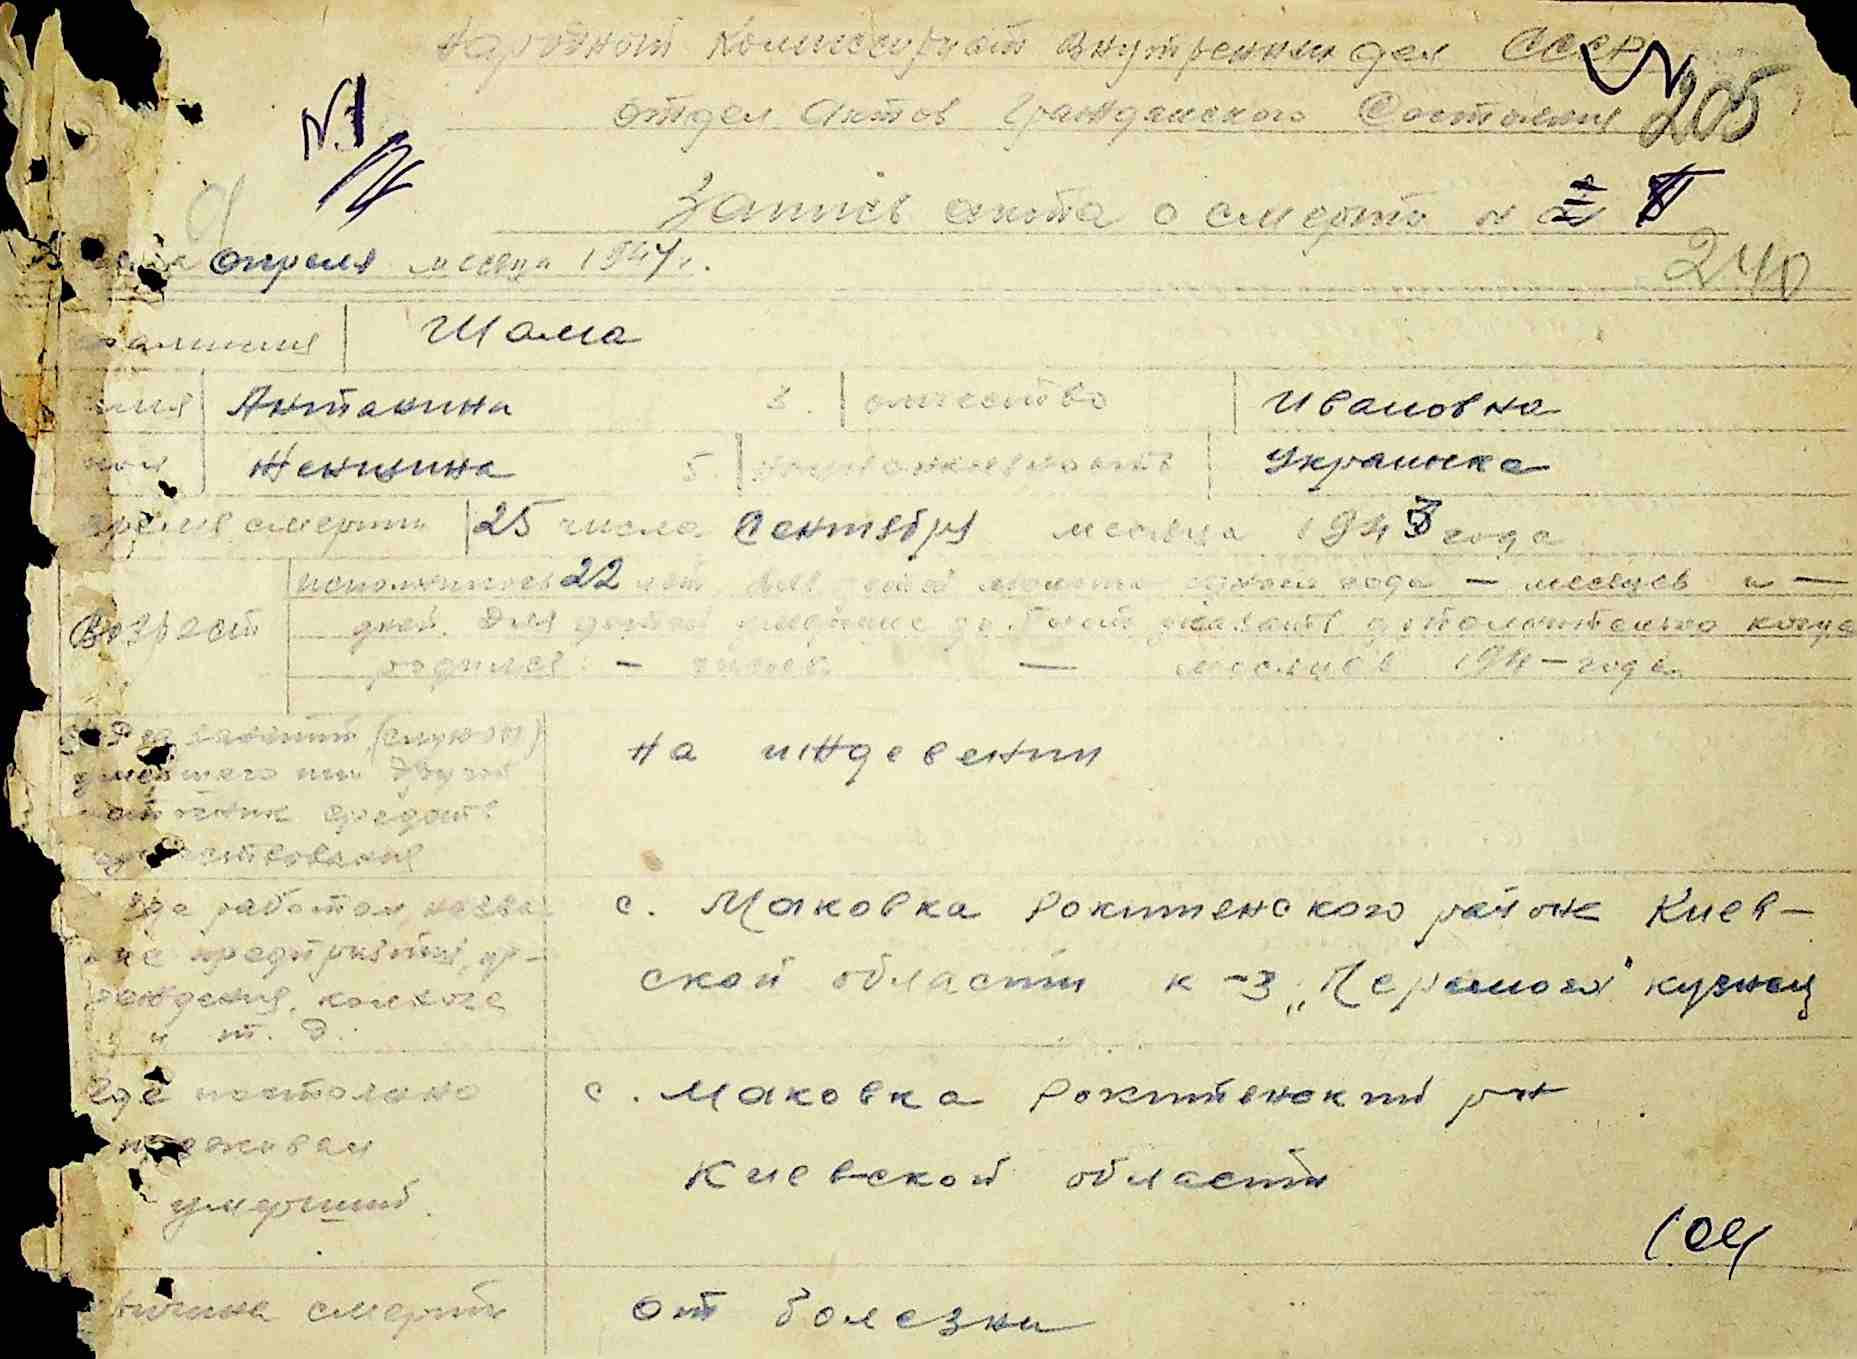 Народный Комиссариат Внутренних дел СССР
Отдел Актов Гражданского Состояния 205
N 1
Запись акта о смерти N
апреля месяца 1944 г.
240
фамилия Шама
имя 3. отчество Ивановна
пол Женщина 5 национальность Украинка
время смерти 25 числа Сентября месяца 1943 года
Возраст исполнилось 22 лет для детей моложе одного года — месяцев и —
дней. Для детей умерших до лет указать дополнительно когда
родился: — числа — месяцев 194 — года
Род занятий
умершего или другой
источник средств
существования
на иждевении
где работал, назва-
ние предприятия, уч-
реждения, колхоза
и т. д.
с. Маковка Рокитенского район Киев-
ской области к-з кузнец
где постоляно
проживал
умерший.
с. Маковка Рокитенский р-н
Киевской области
причина смерти от болезни